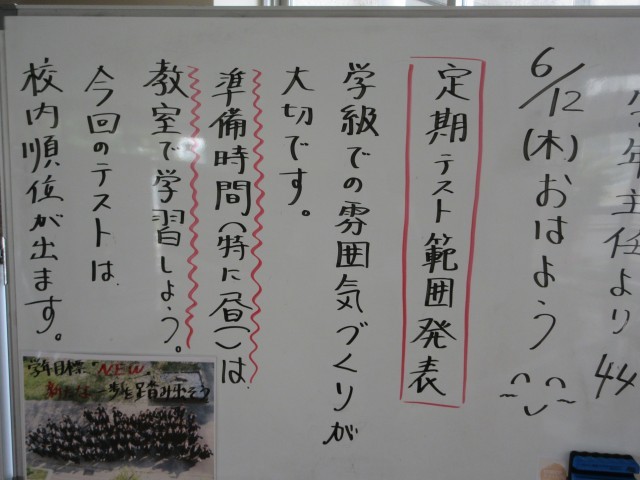 学年主任より 44
6/12(木)おはよう
定期テスト範囲発表
学級での雰囲気づくりが
大切です。
準備時間(特に昼)は
教室で学習しよう。
今回のテストは
校内順位が出ます。
学年目標 NEW
新たな一歩を踏み出そう